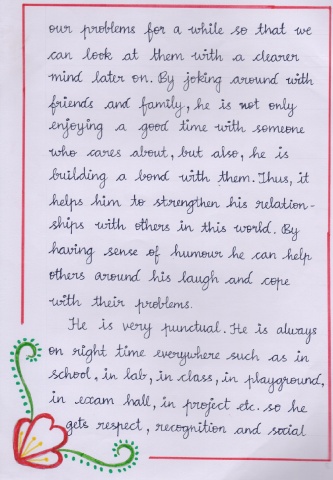 our problems for a while so that we
can look at them with a clearer
mind later on. By joking around with
friends and family, he is not only
enjoying a good time with someone
who cares about, but also, he is
building a bond with them. Thus, it
helps him to strengthen his relation-
ships with others in this world. By
having sense of humour he can help
others around his laugh and cope
with their problems.
He is very punctual. He is always
on right time everywhere such as in
school, in lab, in class, in playground,
in exam hall, in project etc. so he
gets respect, recognition and social